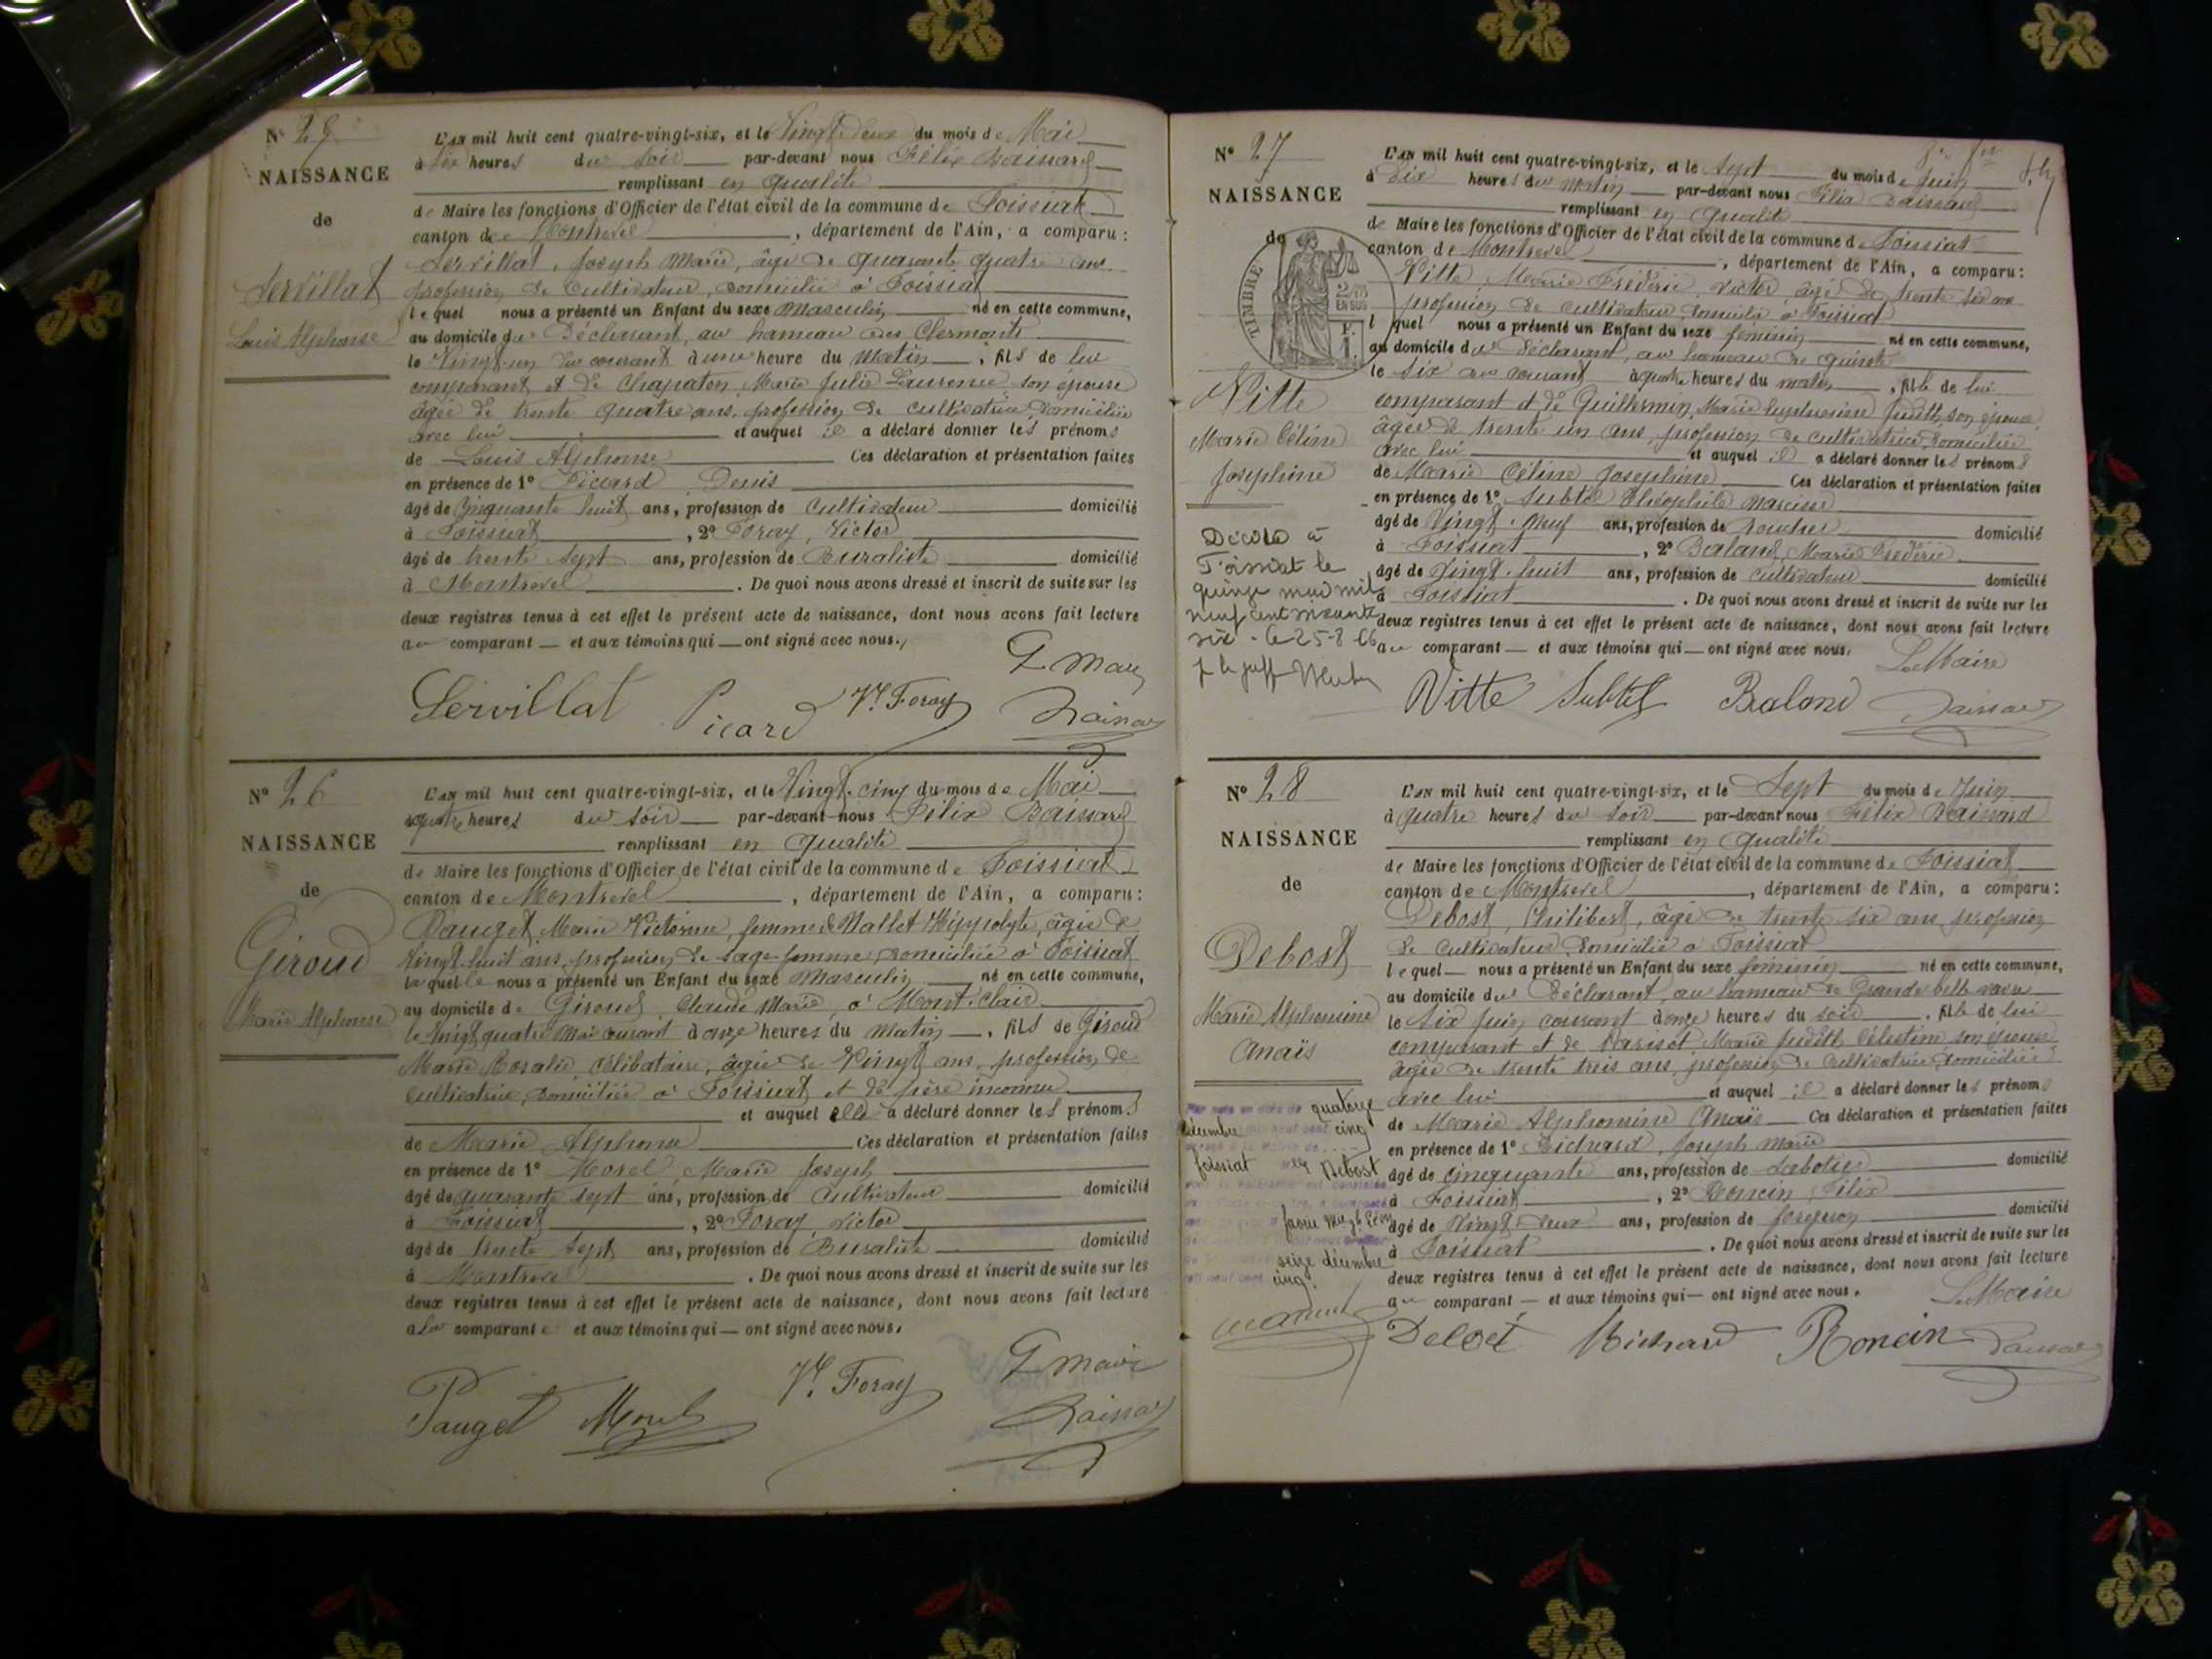 N° 25
NAISSANCE
de
Servillat
Louis Alphonse
L'AN mil huit cent quatre-vingt-six, et le Vingt deux du mois de Mai
à six heures du soir par-devant nous Félix
remplissant en qualité
de Maire les fonctions d'Officier de l'état civil de la commune de Foissiat
canton de Montrevel, département de l'Ain, a comparu :
Servillat, Joseph Marie, âgé de quarante quatre ans
profession de Cultivateur, domicilié à Foissiat
lequel nous a présenté un Enfant du sexe Masculin né en cette commune,
au domicile du Déclarant, au hameau des Clermonts
le Vingt-un du courant à une heure du Matin, fils de lui
comparant et de Chapaton, Marie Julie Laurence son épouse
âgée de trente quatre ans, profession de cultivatrice, domiciliée
avec lui et auquel il a déclaré donner les prénoms
de Louis Alphonse Ces déclaration et présentation faites
en présence de 1° Denis
âgé de Cinquante huit ans, profession de Cultivateur domicilié
à Foissiat, 2° Foray, Victor
âgé de trente sept ans, profession de Buraliste domicilié
à Montrevel. De quoi nous avons dressé et inscrit de suite sur les
deux registres tenus à cet effet le présent acte de naissance, dont nous avons fait lecture
au comparant — et aux témoins qui — ont signé avec nous.
Servillat Picard Vr. Foray
N° 26
NAISSANCE
de
Giroud
Marie Alphonse
L'AN mil huit cent quatre-vingt-six, et le Vingt-cinq du mois de Mai
à quatre heures du soir par-devant nous Félix
remplissant en qualité
de Maire les fonctions d'Officier de l'état civil de la commune de Foissiat
canton de Montrevel, département de l'Ain, a comparu :
Pauget, Marie Victorine, femme de Mallet Hippolyte, âgée de
Vingt-huit ans, profession de sage-femme, domiciliée à Foissiat
laquelle nous a présenté un Enfant du sexe Masculin né en cette commune,
au domicile de Giroud, Claude Marie, à Mont-Clair
le Vingt quatre Mai courant à onze heures du Matin, fils de Giroud
Marie Rosalie, célibataire, âgée de Vingt ans, profession de
cultivatrice, domiciliée à Foissiat et de père inconnu
et auquel elle a déclaré donner les prénoms
de Marie Alphonse Ces déclaration et présentation faites
en présence de 1° Morel, Marie Joseph
âgé de quarante sept ans, profession de Cultivateur domicilié
à Foissiat, 2° Foray, Victor
âgé de trente sept ans, profession de Buraliste domicilié
à Montrevel. De quoi nous avons dressé et inscrit de suite sur les
deux registres tenus à cet effet le présent acte de naissance, dont nous avons fait lecture
à la comparante et aux témoins qui — ont signé avec nous.
Pauget Morel Vr. Foray
N° 27
NAISSANCE
de
TIMBRE
Vitte
Marie Céline
Joséphine
Décédée à
Foissiat le
quinze
neuf cent soixante
six. le 25-8-66
L'AN mil huit cent quatre-vingt-six, et le Sept du mois de Juin
à dix heures du Matin par-devant nous Félix
remplissant en qualité
de Maire les fonctions d'Officier de l'état civil de la commune de Foissiat
canton de Montrevel, département de l'Ain, a comparu :
Vitte, Marie Frédéric Victor, âgé de trente six ans
profession de cultivateur, domicilié à Foissiat
lequel nous a présenté un Enfant du sexe féminin né en cette commune,
au domicile du Déclarant, au hameau de
le six du courant à quatre heures du matin, fille de lui
comparant et de Guillermin, Marie Euphrosine Judith, son épouse
âgée de trente un ans, profession de cultivatrice, domiciliée
avec lui et auquel il a déclaré donner les prénoms
de Marie Céline Joséphine Ces déclaration et présentation faites
en présence de 1° Subtil Théophile Narcisse
âgé de Vingt-neuf ans, profession de domicilié
à Foissiat, 2° Baland, Marie Frédéric
âgé de Vingt-huit ans, profession de cultivateur domicilié
à Foissiat. De quoi nous avons dressé et inscrit de suite sur les
deux registres tenus à cet effet le présent acte de naissance, dont nous avons fait lecture
au comparant — et aux témoins qui — ont signé avec nous.
Le Maire
Vitte Subtil Baland
N° 28
NAISSANCE
de
Debost
Marie Alphonsine
Anaïs
quatorze
décembre cinq
foissiat Debost
seize décembre
cinq.
L'AN mil huit cent quatre-vingt-six, et le Sept du mois de Juin
à quatre heures du soir par-devant nous Félix
remplissant en qualité
de Maire les fonctions d'Officier de l'état civil de la commune de Foissiat
canton de Montrevel, département de l'Ain, a comparu :
Debost, Philibert, âgé de trente six ans, profession
de cultivateur, domicilié à Foissiat
lequel — nous a présenté un Enfant du sexe féminin né en cette commune,
au domicile du Déclarant, au hameau de Grande
le six juin courant à onze heures du soir, fille de lui
comparant et de Marie Judith Célestine son épouse
âgée de trente trois ans, profession de cultivatrice, domiciliée
avec lui et auquel il a déclaré donner les prénoms
de Marie Alphonsine Anaïs Ces déclaration et présentation faites
en présence de 1° Richard, Joseph Marie
âgé de cinquante ans, profession de Sabotier domicilié
à Foissiat, 2° Roncin, Félix
âgé de Vingt-deux ans, profession de forgeron domicilié
à Foissiat. De quoi nous avons dressé et inscrit de suite sur les
deux registres tenus à cet effet le présent acte de naissance, dont nous avons fait lecture
au comparant — et aux témoins qui — ont signé avec nous.
Le Maire
Debost Richard Roncin